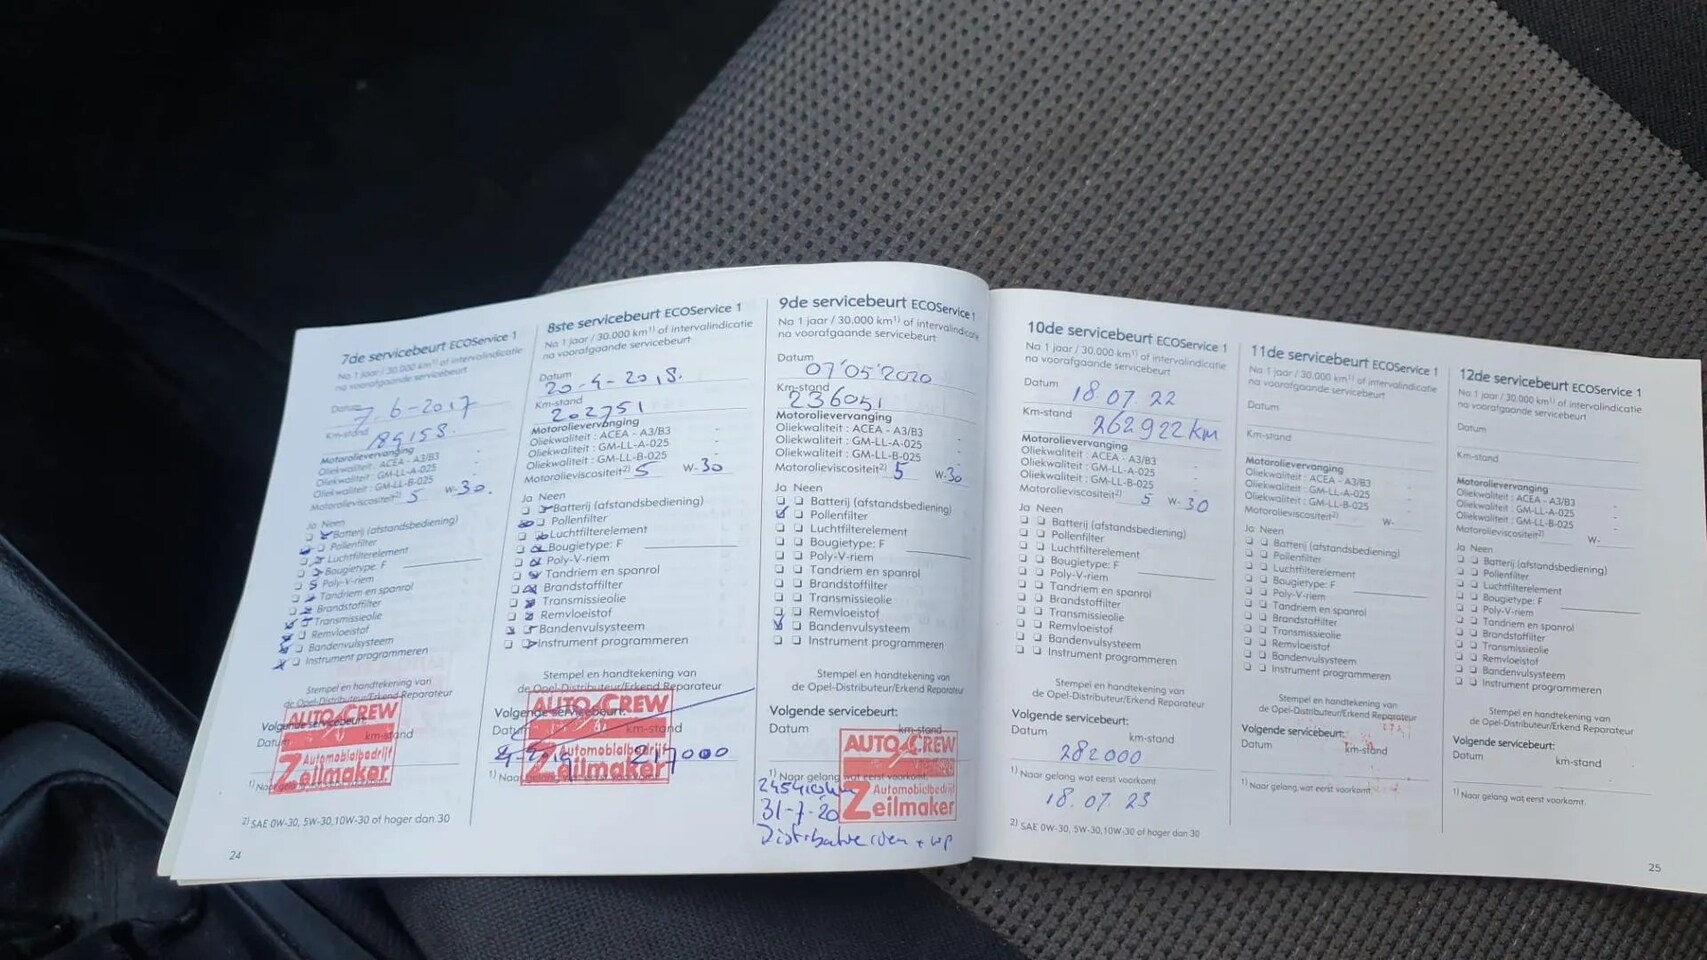 7de servicebeurt ECOService 1
Na 1 jaar / 30.000 km¹⁾ of intervalindicatie
na voorafgaande servicebeurt
Datum
7.6-2017
Km-stand
Motorolievervanging
Oliekwaliteit : ACEA - A3/B3 -
Oliekwaliteit : GM-LL-A-025 -
Oliekwaliteit : GM-LL-B-025 -
Motorolieviscositeit²⁾ 5 W-30.
Ja Neen
Batterij (afstandsbediening)
Pollenfilter
Luchtfilterelement
Bougietype: F
Poly-V-riem
Tandriem en spanrol
Brandstoffilter
Transmissieolie
Remvloeistof
Bandenvulsysteem
Instrument programmeren
Stempel en handtekening van
de Opel-Distributeur/Erkend Reparateur
AUTO CREW
Volgende servicebeurt:
Datum km-stand
Automobielbedrijf
Zeilmaker
²⁾ SAE 0W-30, 5W-30,10W-30 of hoger dan 30
24
8ste servicebeurt ECOService 1
Na 1 jaar / 30.000 km¹⁾ of intervalindicatie
na voorafgaande servicebeurt
Datum
20-4-2018.
Km-stand
202751
Motorolievervanging
Oliekwaliteit : ACEA - A3/B3 -
Oliekwaliteit : GM-LL-A-025 -
Oliekwaliteit : GM-LL-B-025 -
Motorolieviscositeit²⁾ 5 W-30
Ja Neen
Batterij (afstandsbediening)
Pollenfilter
Luchtfilterelement
Bougietype: F
Poly-V-riem
Tandriem en spanrol
Brandstoffilter
Transmissieolie
Remvloeistof
Bandenvulsysteem
Instrument programmeren
Stempel en handtekening van
de Opel-Distributeur/Erkend Reparateur
AUTO CREW
Volgende servicebeurt:
Datum km-stand
217000
Automobielbedrijf
Zeilmaker
9de servicebeurt ECOService 1
Na 1 jaar / 30.000 km¹⁾ of intervalindicatie
na voorafgaande servicebeurt
Datum
07'05'2020
Km-stand
236051
Motorolievervanging
Oliekwaliteit : ACEA - A3/B3 -
Oliekwaliteit : GM-LL-A-025 -
Oliekwaliteit : GM-LL-B-025 -
Motorolieviscositeit²⁾ 5 W-30
Ja Neen
Batterij (afstandsbediening)
Pollenfilter
Luchtfilterelement
Bougietype: F
Poly-V-riem
Tandriem en spanrol
Brandstoffilter
Transmissieolie
Remvloeistof
Bandenvulsysteem
Instrument programmeren
Stempel en handtekening van
de Opel-Distributeur/Erkend Reparateur
Volgende servicebeurt:
Datum km-stand
AUTO CREW
¹⁾ Naar gelang wat eerst voorkomt.
Automobielbedrijf
Zeilmaker
31-7-20
10de servicebeurt ECOService 1
Na 1 jaar / 30.000 km¹⁾ of intervalindicatie
na voorafgaande servicebeurt
Datum 18.07.22
Km-stand 262922 km
Motorolievervanging
Oliekwaliteit : ACEA - A3/B3 -
Oliekwaliteit : GM-LL-A-025 -
Oliekwaliteit : GM-LL-B-025 -
Motorolieviscositeit²⁾ 5 W-30
Ja Neen
Batterij (afstandsbediening)
Pollenfilter
Luchtfilterelement
Bougietype: F
Poly-V-riem
Tandriem en spanrol
Brandstoffilter
Transmissieolie
Remvloeistof
Bandenvulsysteem
Instrument programmeren
Stempel en handtekening van
de Opel-Distributeur/Erkend Reparateur
Volgende servicebeurt:
Datum km-stand
282000
¹⁾ Naar gelang wat eerst voorkomt.
18.07.23
²⁾ SAE 0W-30, 5W-30,10W-30 of hoger dan 30
11de servicebeurt ECOService 1
Na 1 jaar / 30.000 km¹⁾ of intervalindicatie
na voorafgaande servicebeurt
Datum
Km-stand
Motorolievervanging
Oliekwaliteit : ACEA - A3/B3 -
Oliekwaliteit : GM-LL-A-025 -
Oliekwaliteit : GM-LL-B-025 -
Motorolieviscositeit²⁾ W-
Ja Neen
Batterij (afstandsbediening)
Pollenfilter
Luchtfilterelement
Bougietype: F
Poly-V-riem
Tandriem en spanrol
Brandstoffilter
Transmissieolie
Remvloeistof
Bandenvulsysteem
Instrument programmeren
Stempel en handtekening van
de Opel-Distributeur/Erkend Reparateur
Volgende servicebeurt:
Datum km-stand
¹⁾ Naar gelang wat eerst voorkomt.
12de servicebeurt ECOService 1
Na 1 jaar / 30.000 km¹⁾ of intervalindicatie
na voorafgaande servicebeurt
Datum
Km-stand
Motorolievervanging
Oliekwaliteit : ACEA - A3/B3 -
Oliekwaliteit : GM-LL-A-025 -
Oliekwaliteit : GM-LL-B-025 -
Motorolieviscositeit²⁾ W-
Ja Neen
Batterij (afstandsbediening)
Pollenfilter
Luchtfilterelement
Bougietype: F
Poly-V-riem
Tandriem en spanrol
Brandstoffilter
Transmissieolie
Remvloeistof
Bandenvulsysteem
Instrument programmeren
Stempel en handtekening van
de Opel-Distributeur/Erkend Reparateur
Volgende servicebeurt:
Datum km-stand
¹⁾ Naar gelang wat eerst voorkomt.
25